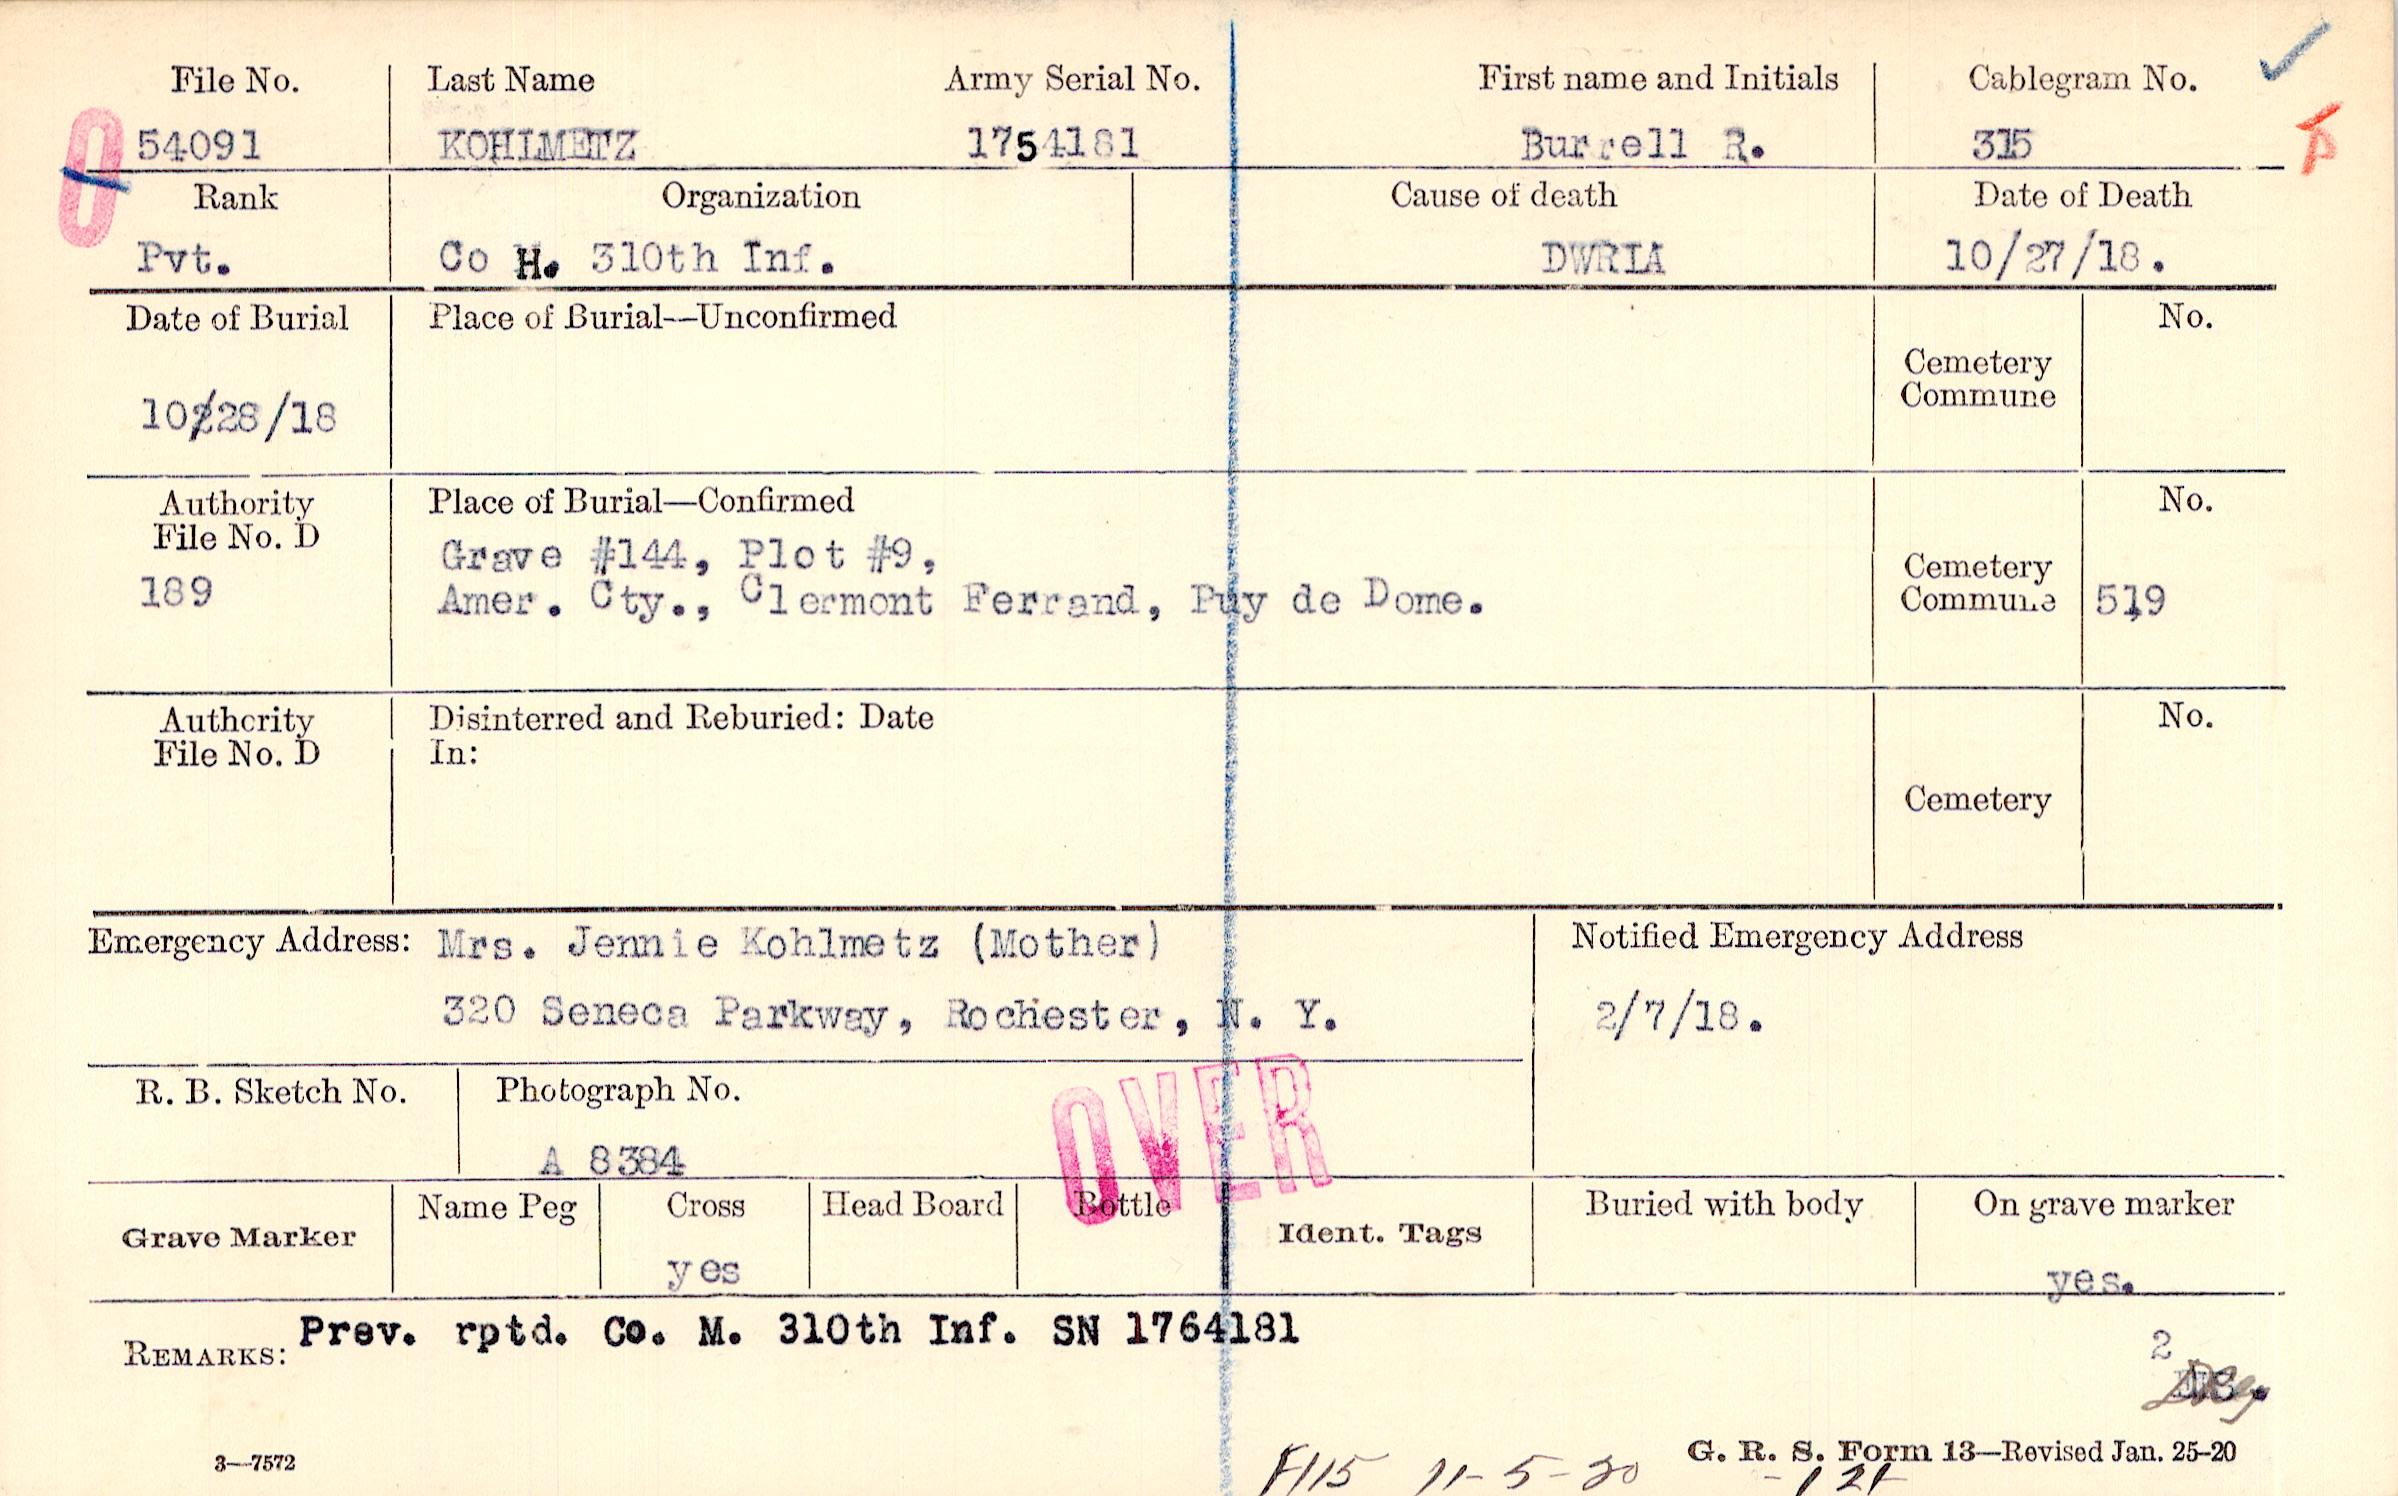 File No. Last Name Army Serial No. First name and Initials Cablegram No.
54091 KOHLMETZ 1754181 Burrell R. 315
Rank Organization Cause of death Date of Death
Pvt. Co H. 310th Inf. DWRIA 10/27/18.
Date of Burial Place of Burial—Unconfirmed No.
Cemetery
Commune
10/28/18
Authority Place of Burial—Confirmed No.
File No. D
Grave #144, Plot #9,
Cemetery
189 Amer. Cty., Clermont Ferrand, Puy de Dome. Commune 519
Authority Disinterred and Reburied: Date No.
File No. D In:
Cemetery
Emergency Address: Mrs. Jennie Kohlmetz (Mother) Notified Emergency Address
320 Seneca Parkway, Rochester, N. Y. 2/7/18.
R. B. Sketch No. Photograph No.
OVER
A 8384
Grave Marker Name Peg Cross Head Board Bottle Ident. Tags Buried with body On grave marker
yes yes.
REMARKS: Prev. rptd. Co. M. 310th Inf. SN 1764181
2
3—7572 G. R. S. Form 13—Revised Jan. 25-20
11-5-20